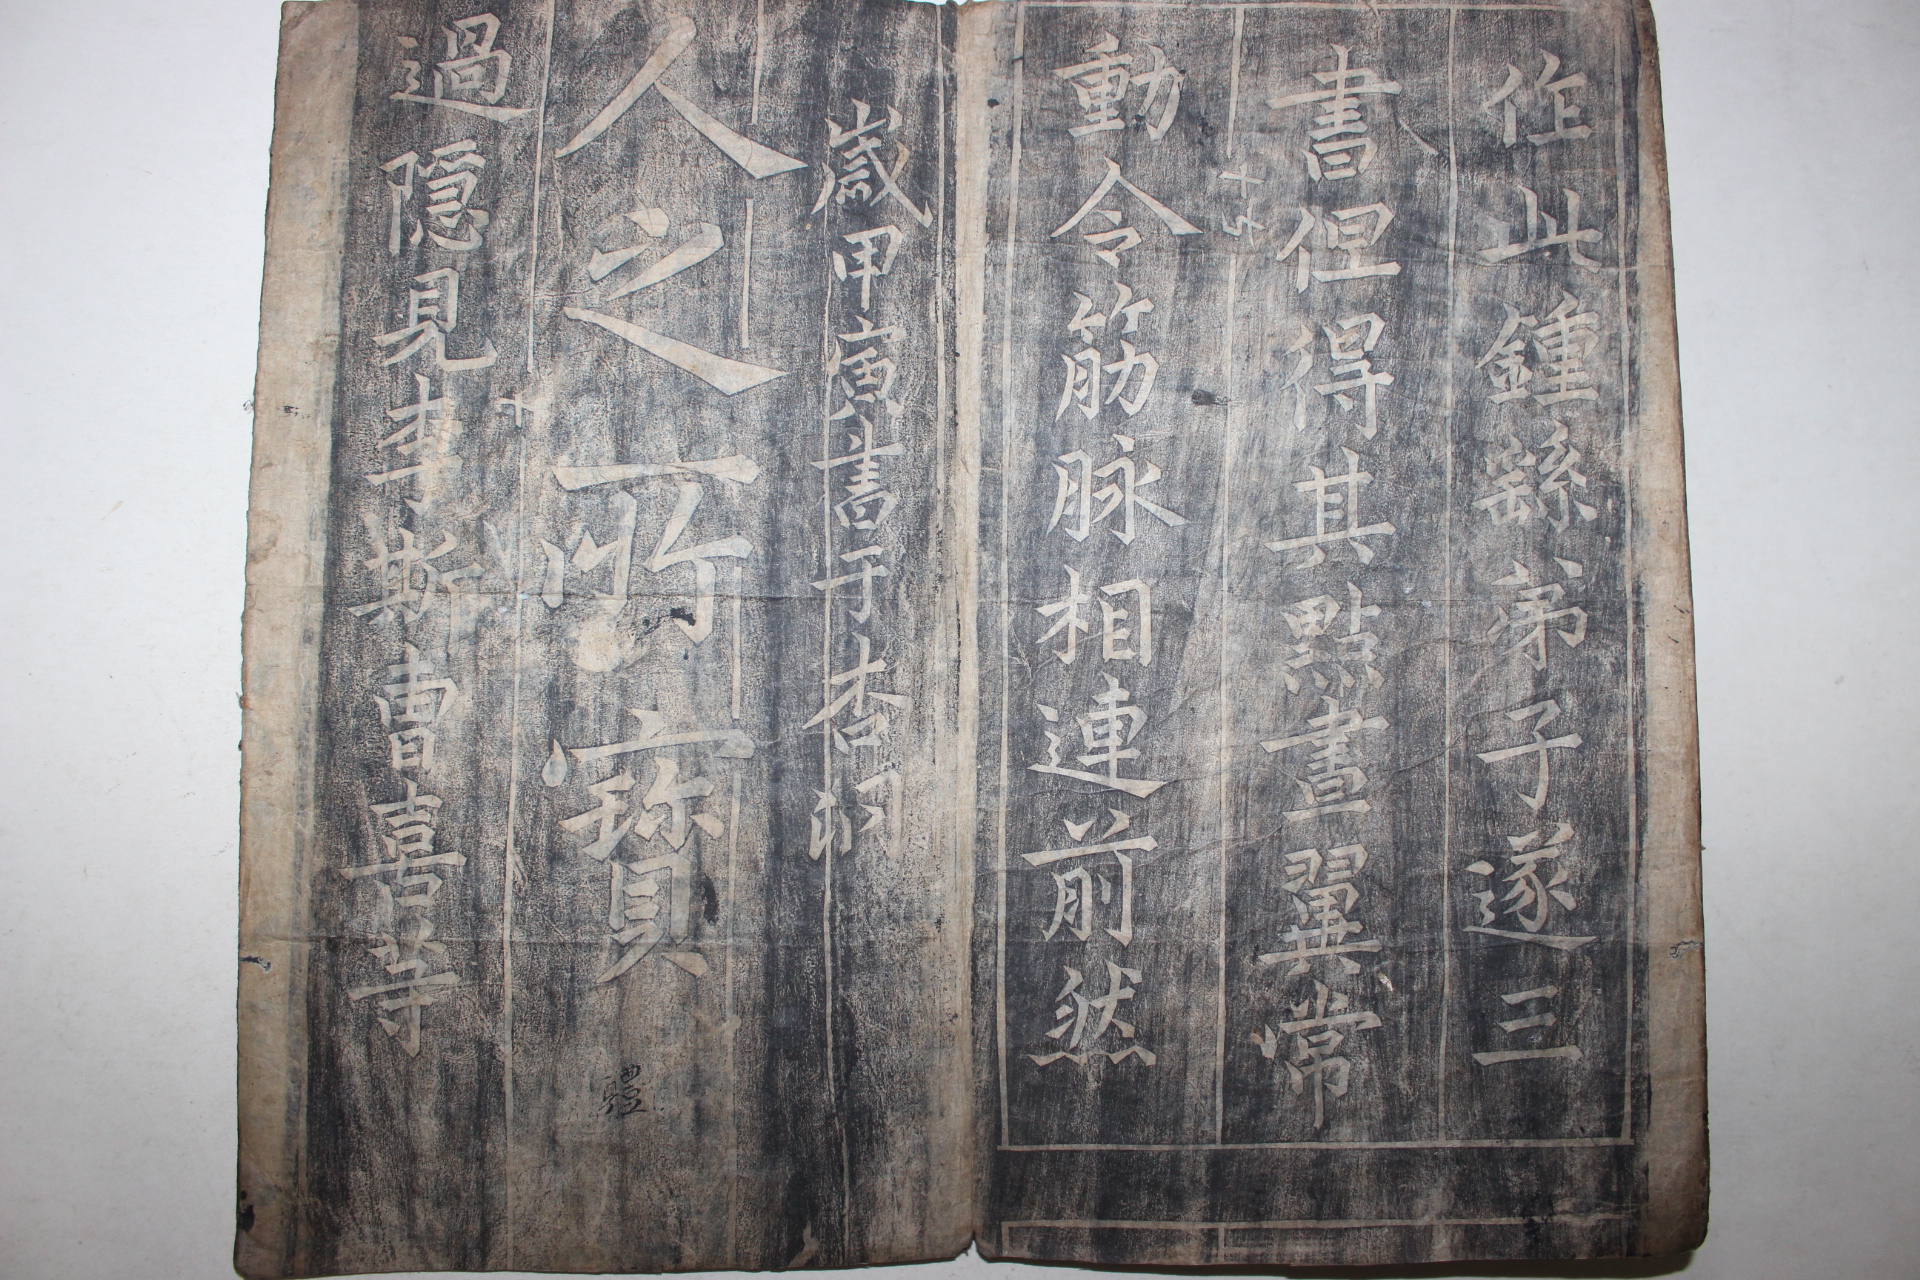 作此鍾繇弟子遂三
書但得其點畫翼常
動令筋脉相連前然
歲甲寅書于杏洞
人之所寳
過隠見李斯曹喜等
體